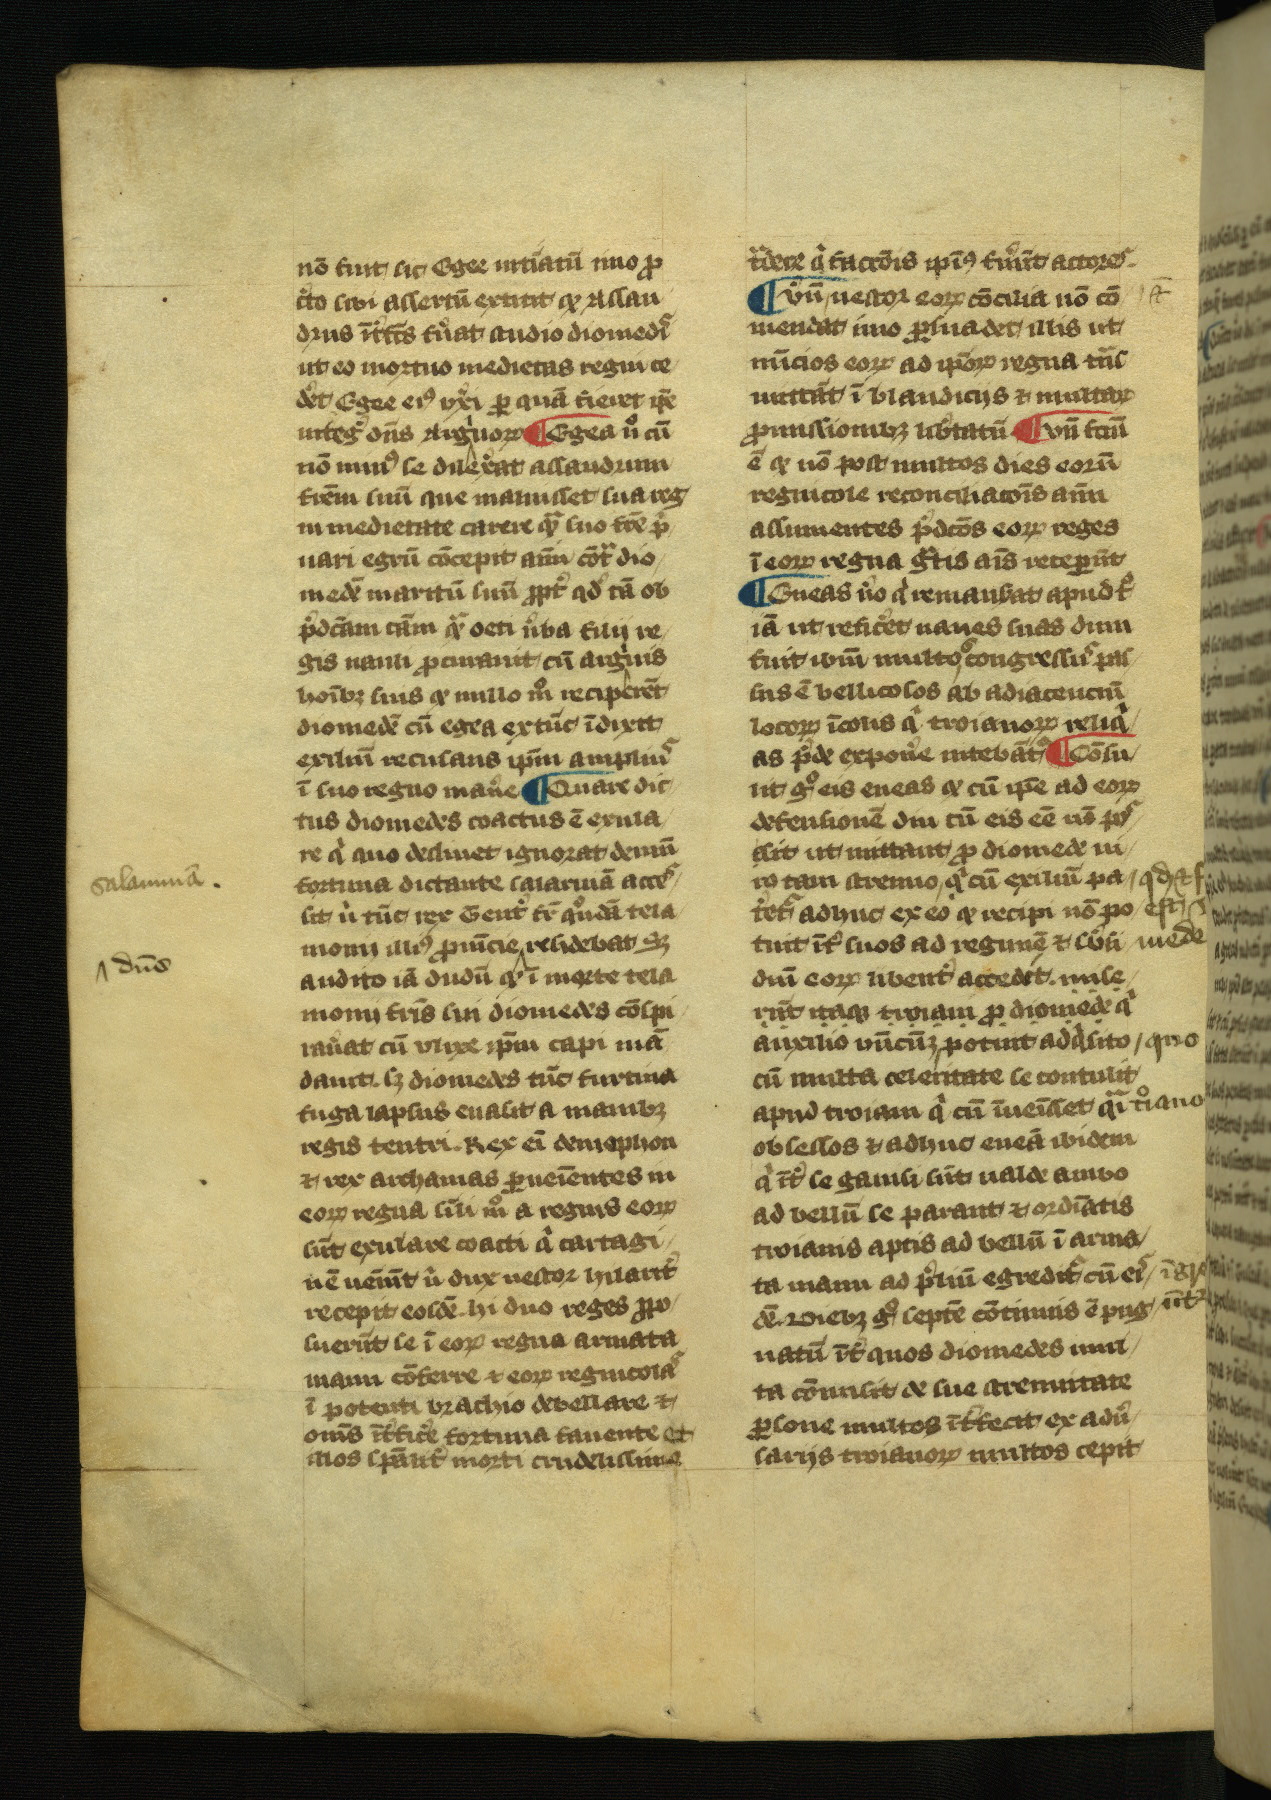 nō fuit sic Egee intīatū īmo ꝓ
c̄to sibi assertū extitit qꝫ assan
drus īt̄fc̄s fūat studio diomedis
ut eo mortuo medietas regni ce
dēt Egee eiꝰ ux̄i ꝑ quā fieret ip̄e
integͬ dn̄s Arguoꝝ ¶ Egea ū cū
nō minꝰ se dilexāt assandrum
frēm suū que mauisset sua reg
ni medietate carere qͣ suo frē pͥ
uari egrū cōcepit aīm cōtͣ dio
medē maritū suū ꝓpt̄ qd̓ tā ob
p̄dc̄am cām qͣ oeti ūba filij re
gis nauli ꝓcurauit cū arguis
hoībꝫ suis qꝫ nullo mͦ reciperēt
diomedē cū egea extūc īdixit
exiliū recusans ip̄m ampliꝰ
ī suo regno manē ¶ Quare dic
tus diomedes coactus ē exula
re qͥ quo declinet ignorat demū
fortuna dictante salarmā acces
sit ū tūc rex Geut̄ fr̄ qͦndā tela
monij illiꝰ ꝓuīcie residebat sꝫ
audito iā dudū qꝫ ī morte tela
monij fr̄is sui diomedes cōspi
rauāt cū ulixe ip̄m capi mā
dauit. sꝫ diomedes tūc furtiua
fuga lapsus euasit a manibꝫ
regis teutri. Rex eī demophon
⁊ rex archamas ꝑueīentes in
eoꝝ regna sīli mͦ a regnis eoꝝ
sūt exulare coacti qͥ cartagi
nē ueīūt ū dux nestor hilarit̄
recepit eosdē. hi duo reges ꝓpo
suerūt se ī eoꝝ regna armata
manu cōferre ⁊ eoꝝ regnicolas
ī potenti brachio debellare ⁊
om̄s īt̄ficē fortuna fauente et
illos sp̄alit̄ morti crudelissime
salaminā.
dn̄s
tͣdere qͥ factōis ipīꝰ fūūt actores.
¶ Vn̄ nestor eoꝝ cōcilia nō cō
mendat imo ꝑsuadet illis ut
nūcios eoꝝ ad ip̄oꝝ regna tn̄s
mittāt ī blandicijs ⁊ multaꝝ
ꝓmissionibꝫ libtatū ¶ Vn̄ fcm̄
ē qꝫ nō post multos dies eorū
regnicole reconciliatōis aīm
assumentes p̄dcōs eoꝝ reges
ī eoꝝ regna gͣtis aīs recepūt
¶ Eneas ūo qͥ remansat apud tͦ
iā ut reficēt naues suas dum
fuit ibm̄ multoͦ congressuꝰ pas
sus ē bellicosos ab adiacenciū
locoꝝ īcolis qͥ troianoꝝ reliqͥ
as p̄de exponē nitebāt̄ ¶ Cōsu
it gͦ eis eneas qꝫ cū ip̄e ad eoꝝ
defensionē diu cū eis eē nō pos
sit ut mittant ꝓ diomede ui
ro tam strenuo, qͥ cū exiliū pa
t̄et̄ adhuc ex eo qꝫ recipi nō po
tuit īt̄ suos ad regimē ⁊ sb̄si
diū eoꝝ libent̄ accedet. mise
rūt itaqꝫ troiam ꝓ diomede qͥ
auxilio ūcūqꝫ potuit adqͥsito
cū multa celeritate se contulit
apud troiam qͥ cū īueīsset qͣi tͦiano
obsessos ⁊ adhuc eneā ibidem
qͥ īt̄ se gauisi sūt ualde ambo
ad bellū se parant ⁊ ordīatis
troianis aptis ad bellū ī arma
ta manu ad p̄liū egredit̄ cū eis
dē. Diebꝫ gͦ septē cōtinuis ē pug
natū īt̄ quos diomedes mul
ta cōmisit de sue strenuitate
ꝑsone multos īt̄fecit ex adū
sarijs troianoꝝ multos cepit
quo